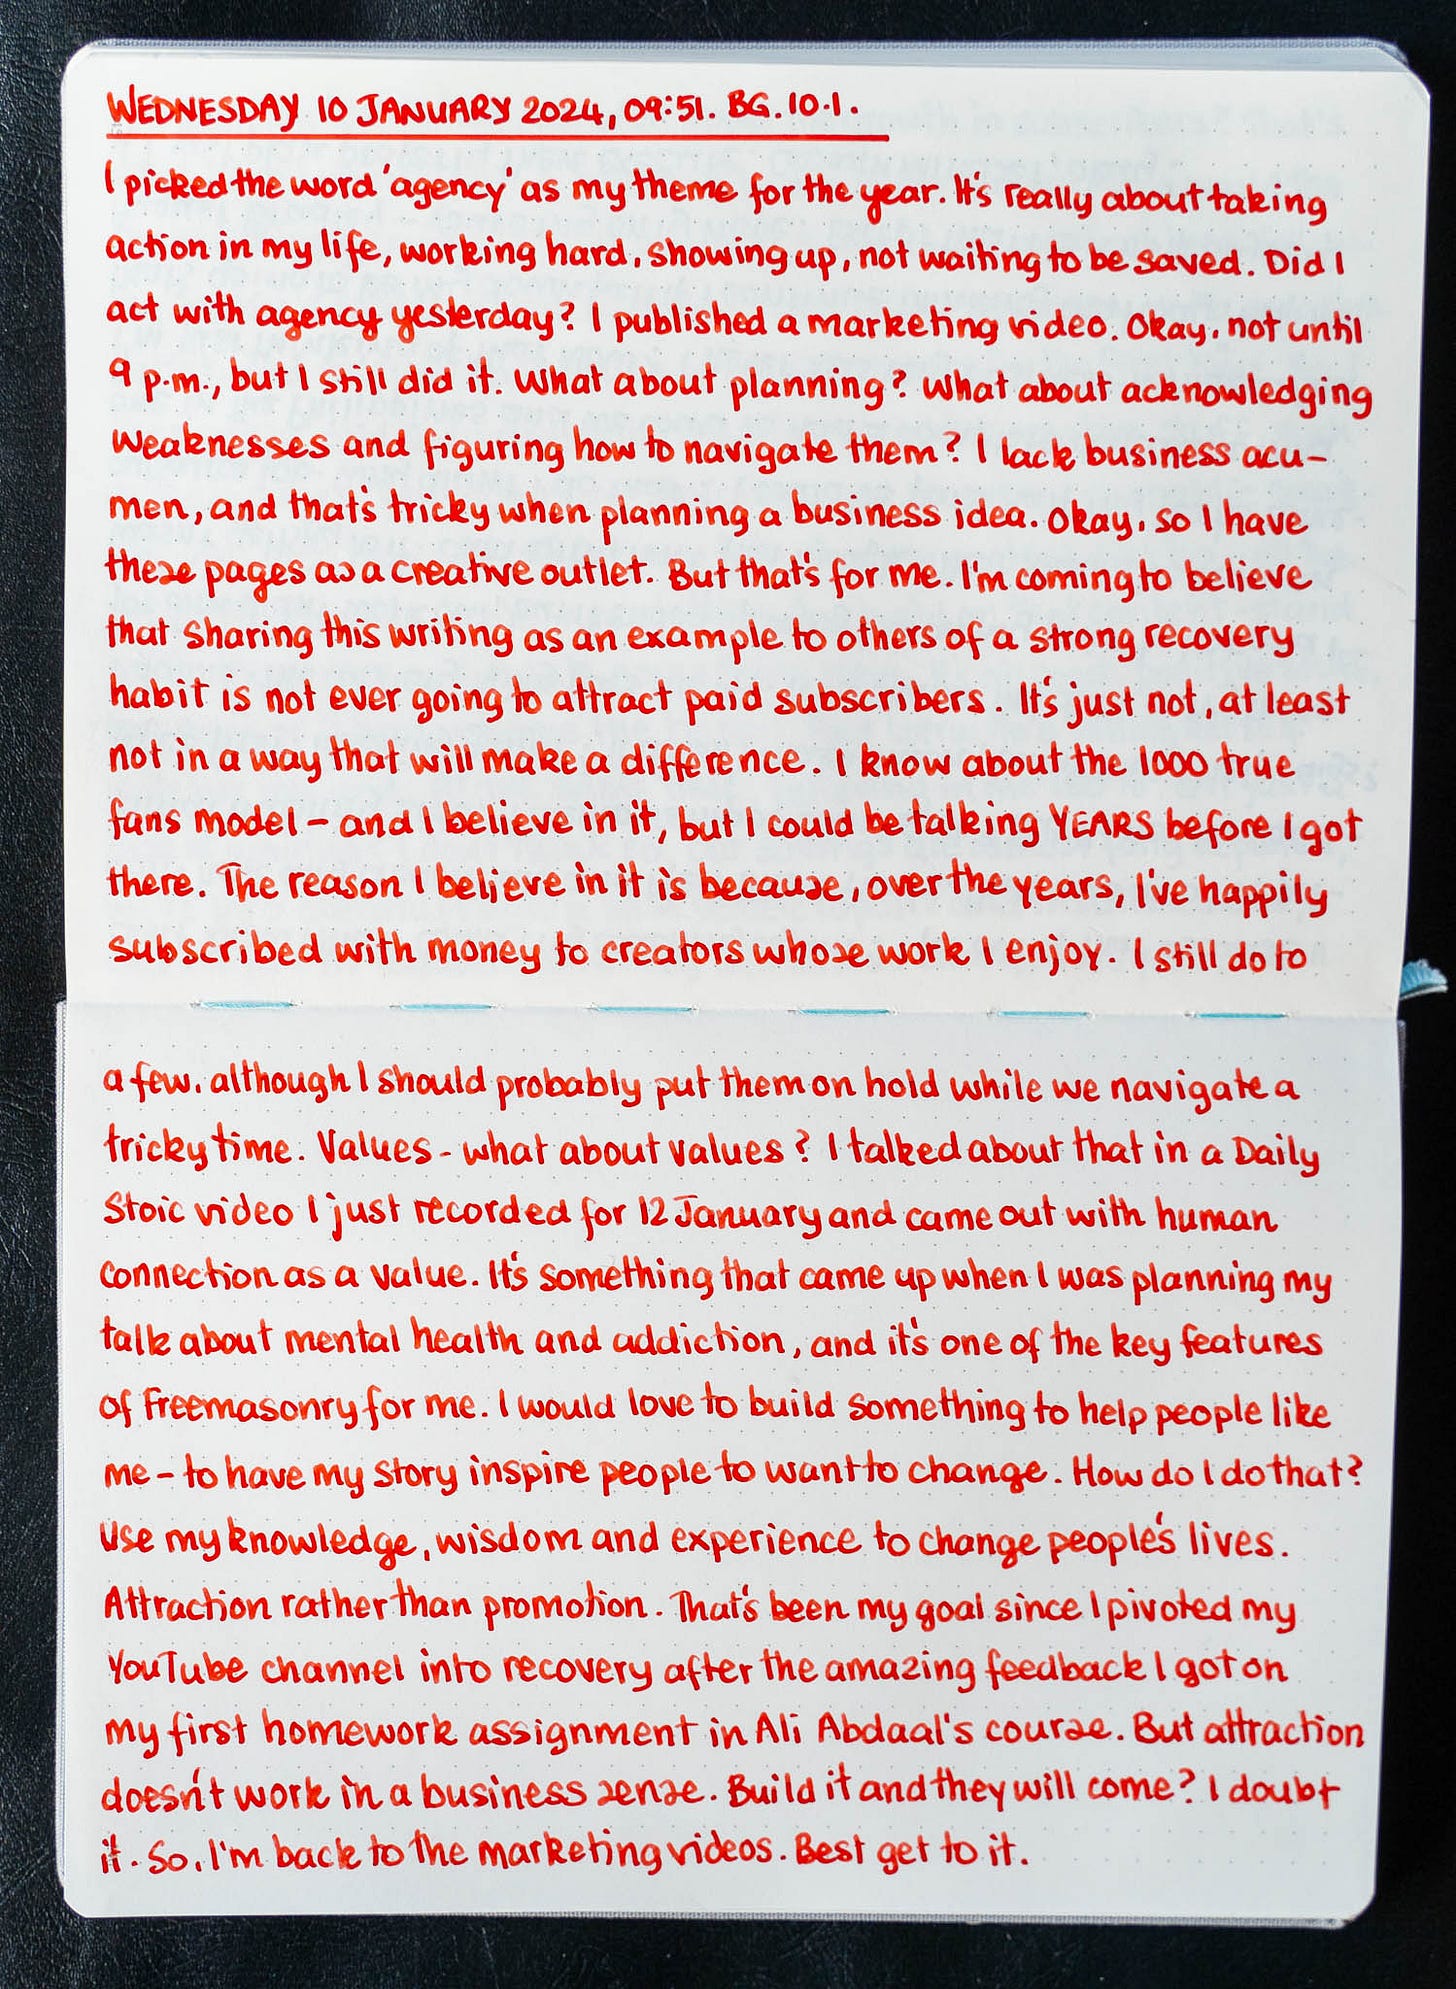 WEDNESDAY 10 JANUARY 2024, 09:51. BG. 10.1.
I picked the word 'agency' as my theme for the year. It's really about taking
action in my life, working hard, showing up, not waiting to be saved. Did I
act with agency yesterday? I published a marketing video. Okay, not until
9 p.m., but I still did it. What about planning? What about acknowledging
weaknesses and figuring how to navigate them? I lack business acu-
men, and that's tricky when planning a business idea. Okay, so I have
these pages as a creative outlet. But that's for me. I'm coming to believe
that sharing this writing as an example to others of a strong recovery
habit is not ever going to attract paid subscribers. It's just not, at least
not in a way that will make a difference. I know about the 1000 true
fans model - and I believe in it, but I could be talking YEARS before I got
there. The reason I believe in it is because, over the years, I've happily
subscribed with money to creators whose work I enjoy. I still do to
a few, although I should probably put them on hold while we navigate a
tricky time. Values - what about values? I talked about that in a Daily
Stoic video I just recorded for 12 January and came out with human
connection as a value. It's something that came up when I was planning my
talk about mental health and addiction, and it's one of the key features
of Freemasonry for me. I would love to build something to help people like
me - to have my story inspire people to want to change. How do I do that?
Use my knowledge, wisdom and experience to change people's lives.
Attraction rather than promotion. That's been my goal since I pivoted my
YouTube channel into recovery after the amazing feedback I got on
my first homework assignment in Ali Abdaal's course. But attraction
doesn't work in a business sense. Build it and they will come? I doubt
it. So, I'm back to the marketing videos. Best get to it.